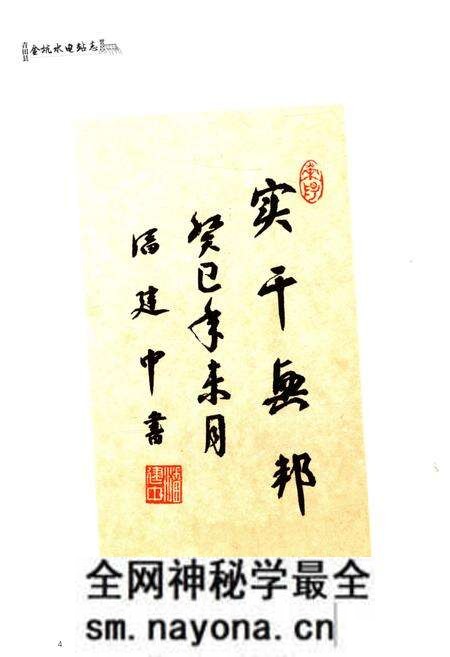 青田县
金坑水电站志
实干興邦
癸巳年未月
潘建中書
潘建中
全网神秘学最全
sm.nayona.cn
4